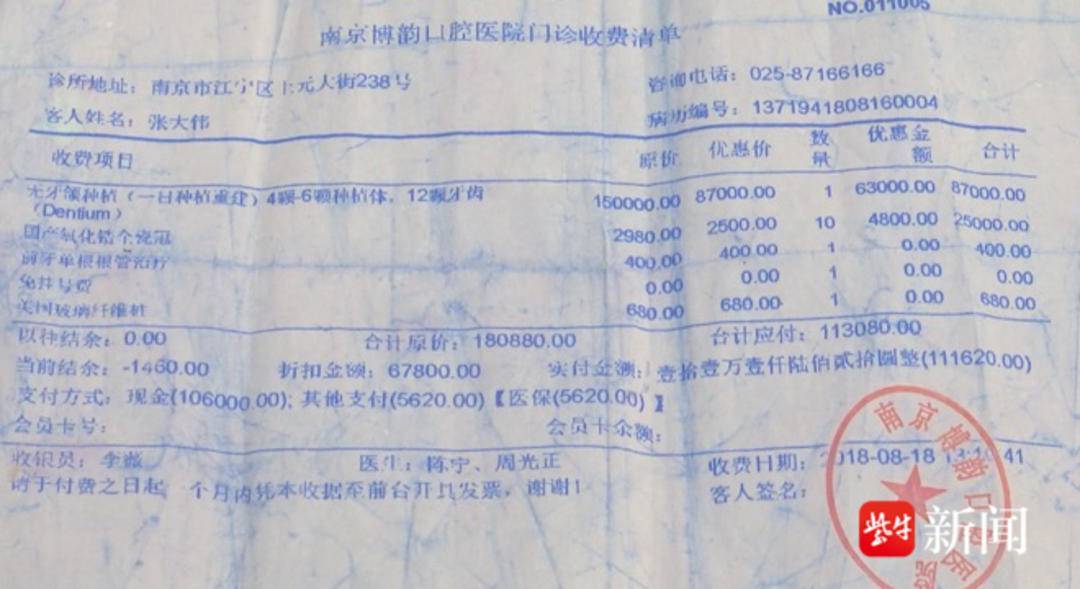 NO.011005
南京博韵口腔医院门诊收费清单
诊所地址：南京市江宁区上元大街238号 咨询电话：025-87166166
客人姓名：张大伟 病历编号：1371941808160004
收费项目 原价 优惠价 数量 优惠金额 合计
无牙颌种植（一日种植重建）4颗-6颗种植体，12颗牙齿（Dentium） 150000.00 87000.00 1 63000.00 87000.00
国产氧化锆全瓷冠 2980.00 2500.00 10 4800.00 25000.00
前牙单根根管治疗 400.00 400.00 1 0.00 400.00
免挂号费 0.00 0.00 1 0.00 0.00
美国玻璃纤维桩 680.00 680.00 1 0.00 680.00
以往结余：0.00 合计原价：180880.00 合计应付：113080.00
当前结余：-1460.00 折扣金额：67800.00 实付金额：壹拾壹万壹仟陆佰贰拾圆整(111620.00)
支付方式：现金(106000.00); 其他支付(5620.00)【医保(5620.00)】
会员卡号： 会员卡余额：
收银员：李薇 医生：陈宁、周光正 收费日期：2018-08-18 41
请于付费之日起一个月内凭本收据至前台开具发票，谢谢！ 客人签名：
南京博韵口腔医院
紫牛新闻